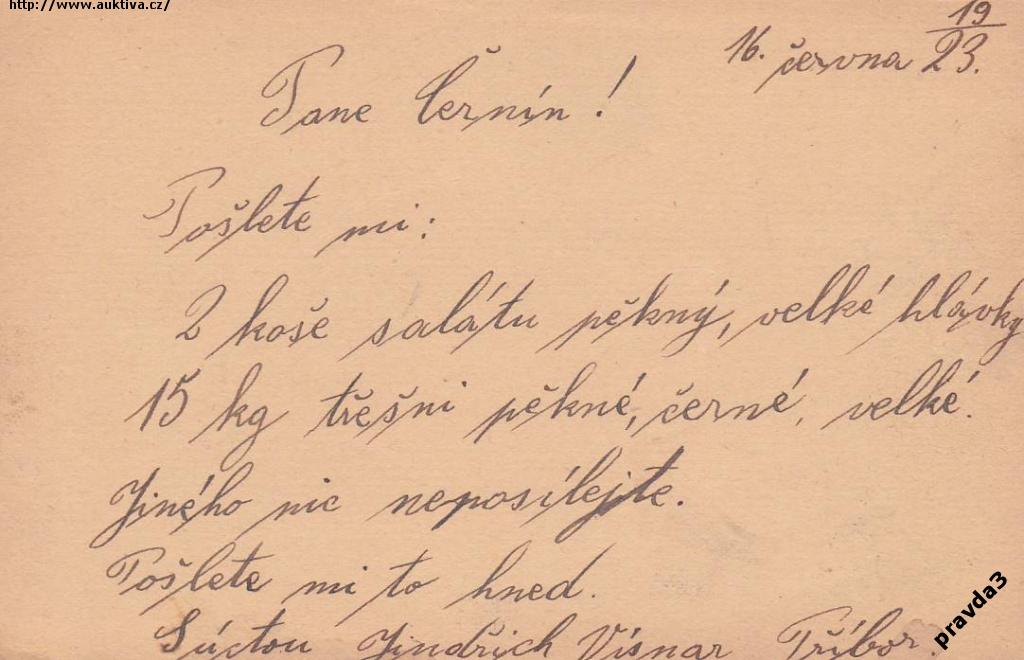 http://www.auktiva.cz/
16. června 19/23.
Pane Černín!
Pošlete mi:
2 koše salátu pěkný, velké hlávky
15 kg třešni pěkné, černé, velké.
Jiného nic neposílejte.
Pošlete mi to hned.
Súctou Jindřich Vísnar Příbor.
pravda3